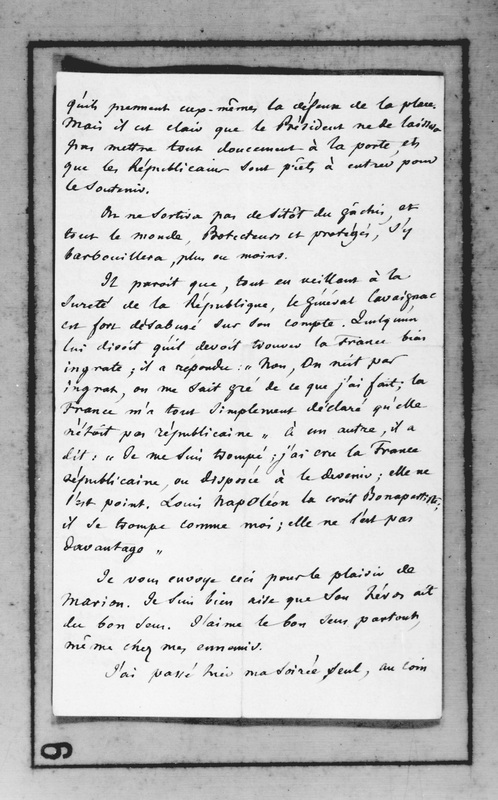 qu'ils prennent eux-mêmes la défense de la place.
Mais il est clair que le Président ne se laissera
pas mettre tout doucement à la porte, et
que les Républicains sont prêts à entrer pour
le soutenir.
On ne sortira pas de sitôt du gâchis, et
tout le monde, Protecteurs et protégés, s'y
barbouillera, plus ou moins.
Il paroit que, tout en veillant à la
sureté de la République, le général Cavaignac
est fort désabusé sur son compte. Quelqu'un
lui disoit qu'il devoit trouver la France bien
ingrate; il a répondu: "Non, On n'est pas
ingrat, on me sait gré de ce que j'ai fait; la
France m'a tout simplement déclaré qu'elle
n'étoit pas républicaine" à un autre, il a
dit: "Je me suis trompé; j'ai cru la France
républicaine, ou disposée à le devenir; elle ne
l'est point. Louis Napoléon la croit Bonapartiste;
il se trompe comme moi; elle ne l'est pas
davantage"
Je vous envoye ceci pour le plaisir de
Marion. Je suis bien aise que son héros ait
du bon sens. J'aime le bon sens partout,
même chez mes ennemis.
J'ai passé hier ma soirée, seul, au coin
9